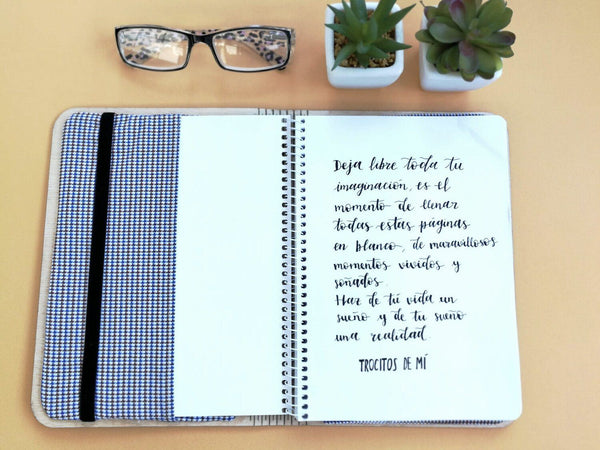 Deja libre toda tu
imaginación, es el
momento de llenar
todas estas páginas
en blanco, de maravillosos
momentos vividos y
soñados.
Haz de tú vida un
sueño y de tu sueño
una realidad
TROCITOS DE MÍ